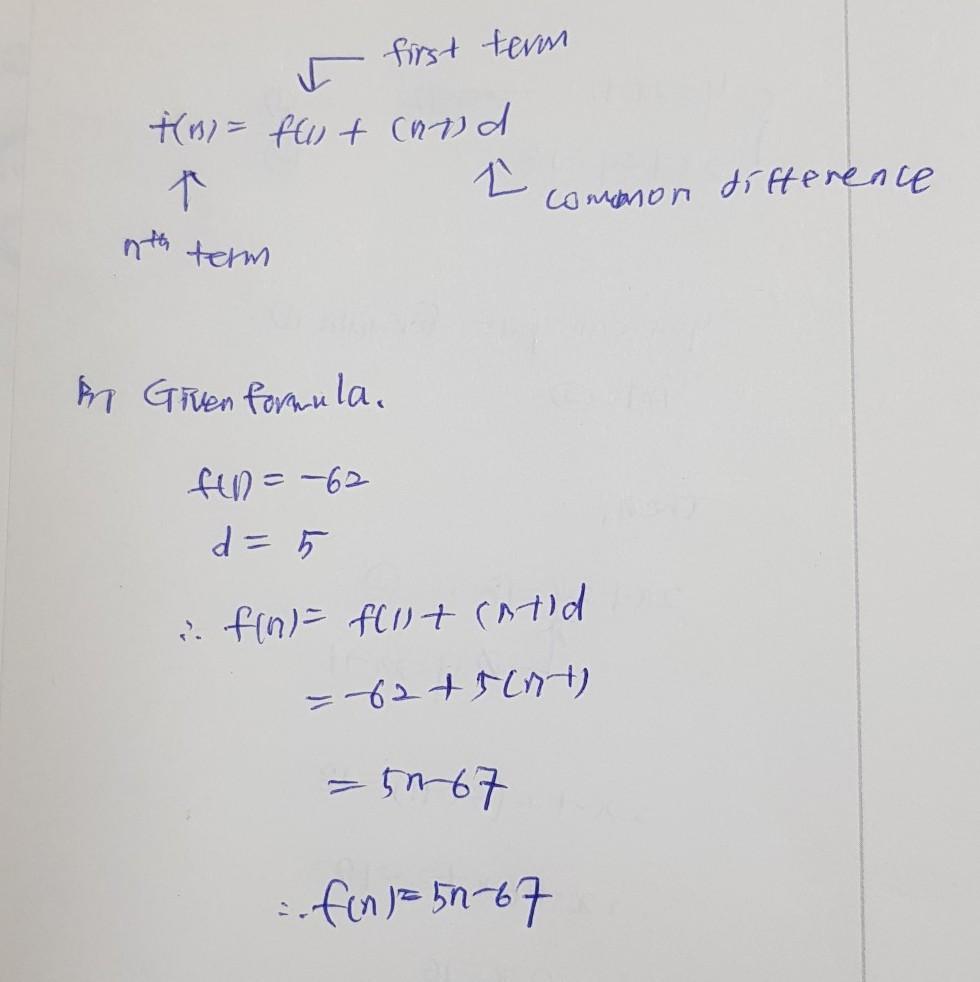 first term
f(n) = f(1) + (n-1)d
common difference
nth term
By Given formula.
f(1) = -62
d = 5
∴ f(n) = f(1) + (n-1)d
= -62 + 5(n-1)
= 5n-67
∴ f(n) = 5n-67